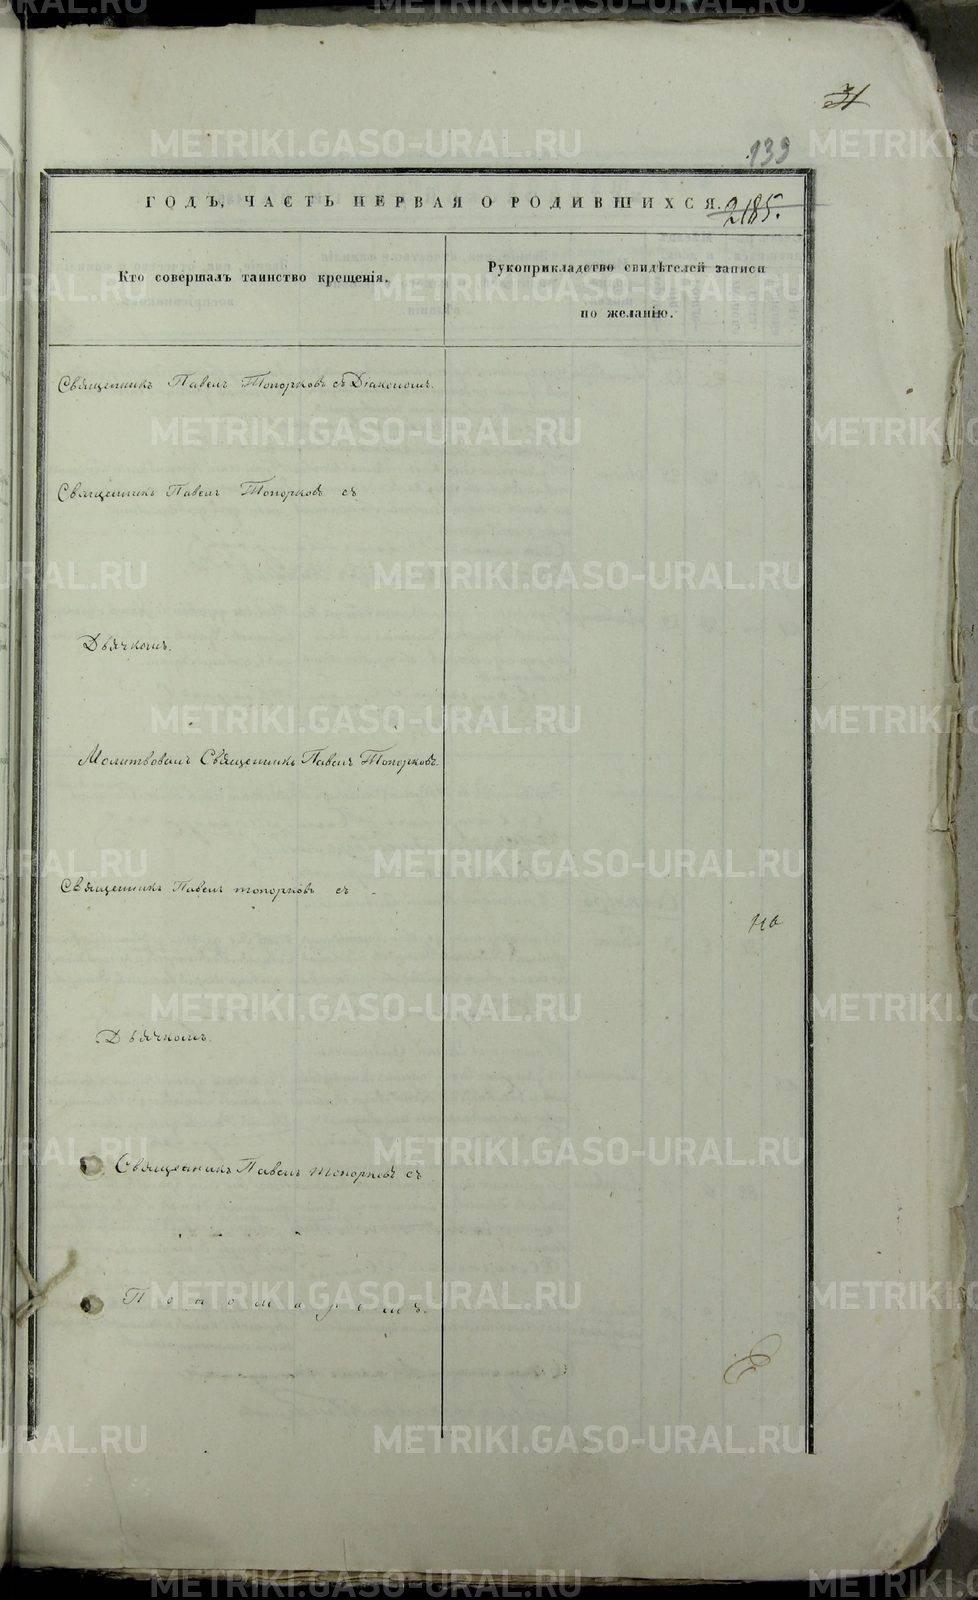 139
ГОДЪ, ЧАСТЬ ПЕРВАЯ О РОДИВШИХСЯ.
2185.
Кто совершалъ таинство крещенія.
Рукоприкладство свидѣтелей записи
по желанію.
Священникъ Павелъ Топорковъ съ Діакономъ.
Священникъ Павелъ Топорковъ съ
Дьячкомъ.
Молитвовалъ Священникъ Павелъ Топорковъ.
Священникъ Павелъ топорковъ съ
Дьячкомъ.
Священникъ Павелъ топорковъ съ
Пономаремъ.
METRIKI.GASO-URAL.RU